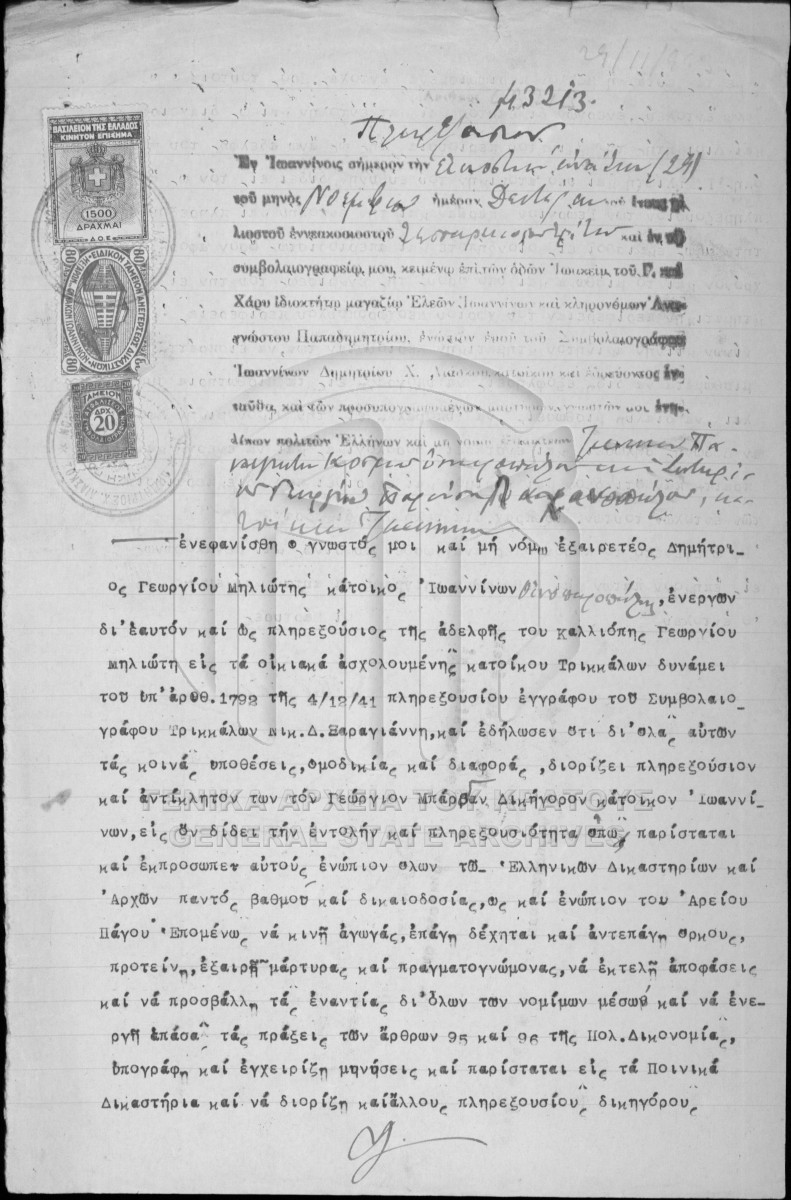 29/11/
ΒΑΣΙΛΕΙΟΝ ΤΗΣ ΕΛΛΑΔΟΣ
ΚΙΝΗΤΟΝ ΕΠΙΣΗΜΑ
1500
ΔΡΑΧΜΑΙ
Δ.Ο.Ε.
80 80
80 80
ΤΑΜΕΙΟΝ
ΔΡΧ.
20
3213.
Πληρεξούσιον
Ἐν Ἰωαννίνοις σήμερον τὴν εἰκοστὴν ἐνάτην (29)
τοῦ μηνὸς Νοεμβρίου ἡμέραν Δευτέραν τοῦ χι
λιοστοῦ ἐννεακοσιοστοῦ τεσσαρακοστοῦ τρίτου καὶ ἐν τῷ
συμβολαιογραφείῳ μου, κειμένῳ ἐπὶ τῶν ὁδῶν Ἰωακεὶμ τοῦ Γ. καὶ
Χάρυ ἰδιοκτήτῳ μαγαζίῳ Ἐλεῶν Ἰωαννίνων καὶ κληρονόμων Ἀνα
γνώστου Παπαδημητρίου, ἐνώπιον ἐμοῦ τοῦ Συμβολαιογράφου
Ἰωαννίνων Δημητρίου Χ. κατοίκου καὶ ἑδρεύοντος ἐν
ταῦθα, καὶ τῶν προσυπογραφομένων μαρτύρων γνωστῶν μοι ἐνη
λίκων πολιτῶν Ἑλλήνων καὶ μὴ
Γεωργίου κα
τοίκων Ἰωαννίνων
ἐνεφανίσθη ο γνωστός μοι καί μή νόμῳ ἐξαιρετέος Δημήτρι-
ος Γεωργίου Μηλιώτης κάτοικος Ἰωαννίνων , ἐνεργῶν
δι'ἑαυτόν καί ὡς πληρεξούσιος τῆς ἀδελφῆς του Καλλιόπης Γεωργίου
Μηλιώτη εἰς τά οἰκιακά ἀσχολουμένης κατοίκου Τρικκάλων δυνάμει
του ὑπ'ἀριθ.1792 τῆς 4/12/41 πληρεξουσίου ἐγγράφου τοῦ Συμβολαιο-
γράφου Τρικκάλων Νικ.Δ.Ξαραγιάννη,καί ἐδήλωσεν ὅτι δι'ὅλας αὐτῶν
τάς κοινάς ὑποθέσεις,ομοδικίας καί διαφοράς ,διορίζει πληρεξούσιον
καί ἀντίκλητον των τόν Γεώργιον Μπάρδαν Δικήγορον κάτοικον Ἰωαννί-
νων,εἰς ὅν δίδει τήν ἐντολήν καί πληρεξουσιότητα ὅπως παρίσταται
καί ἐκπροσωπεῖ αὐτούς ἐνώπιον ὅλων τῶν Ἑλληνικῶν Δικαστηρίων καί
Ἀρχῶν παντός βαθμοῦ καί δικαιοδοσίας,ὡς καί ἐνώπιον του Ἀρείου
Πάγου Ἑπομένως νά κινῇ ἀγωγάς,ἐπάγῃ δέχηται καί ἀντεπάγῃ ὅρκους,
προτείνῃ,ἐξαιρῇ μάρτυρας καί πραγματογνώμονας,νά ἐκτελῇ ἀποφάσεις
καί νά προσβάλλῃ τάς ἐναντίας δι'ὅλων των νομίμων μέσων καί νά ἐνε-
ργῇ ἁπάσας τάς πράξεις τῶν ἄρθρων 95 καί 96 τῆς Πολ.Δικονομίας,
ὑπογράφῃ καί ἐγχειρίζῃ μηνύσεις καί παρίσταται εἰς τά Ποινικά
Δικαστήρια καί νά διορίζῃ καί ἄλλους πληρεξουσίους δικηγόρους
ΓΕΝΙΚΑ ΑΡΧΕΙΑ ΤΟΥ ΚΡΑΤΟΥΣ
GENERAL STATE ARCHIVES